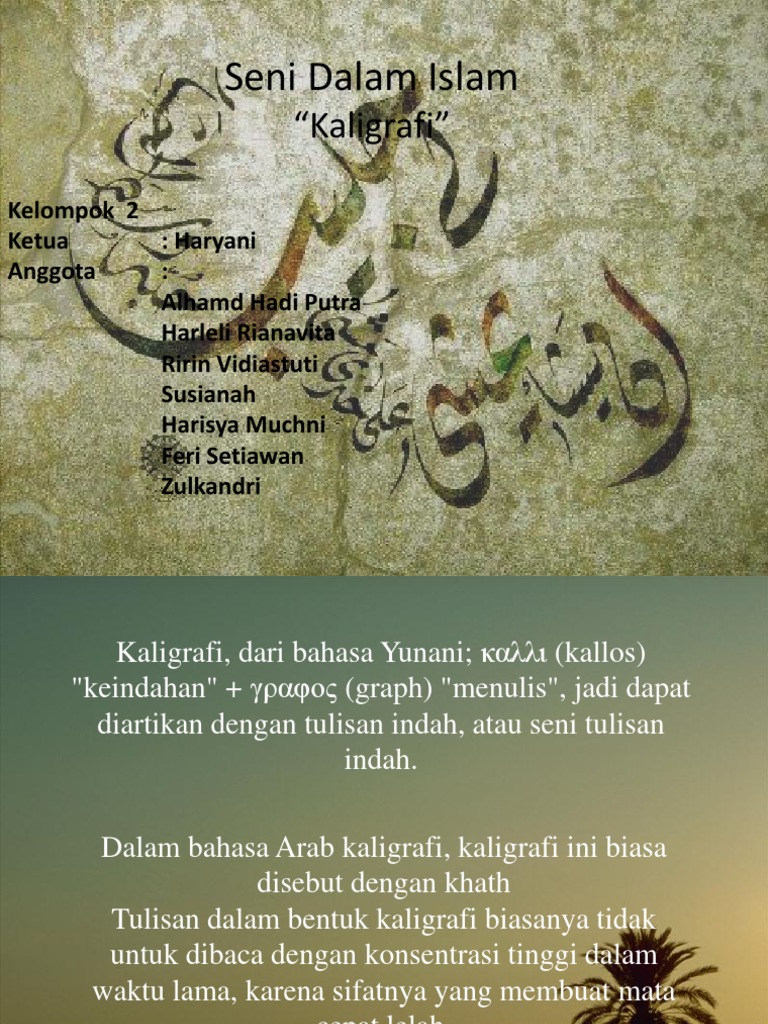 Seni Dalam Islam
“Kaligrafi”
Kelompok 2
Ketua : Haryani
Anggota :
Alhamd Hadi Putra
Harleli Rianavita
Ririn Vidiastuti
Susianah
Harisya Muchni
Feri Setiawan
Zulkandri
Kaligrafi, dari bahasa Yunani; καλλι (kallos)
"keindahan" + γραφος (graph) "menulis", jadi dapat
diartikan dengan tulisan indah, atau seni tulisan
indah.
Dalam bahasa Arab kaligrafi, kaligrafi ini biasa
disebut dengan khath
Tulisan dalam bentuk kaligrafi biasanya tidak
untuk dibaca dengan konsentrasi tinggi dalam
waktu lama, karena sifatnya yang membuat mata